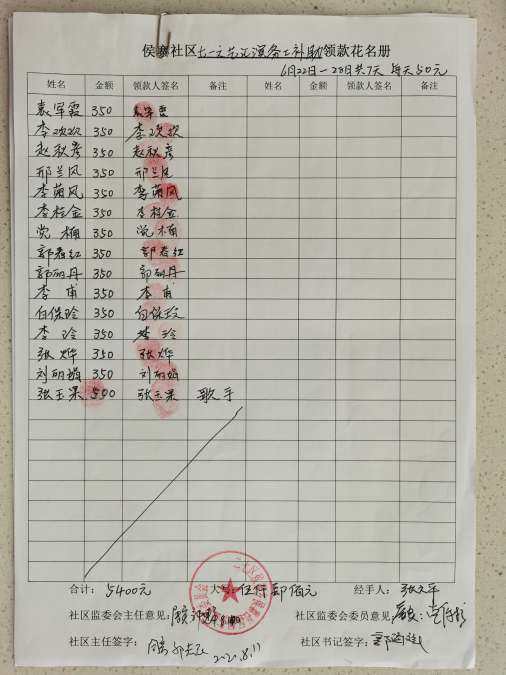 侯寨社区七一文艺汇演务工补助领款花名册
6月22日—28日共7天 每天50元
姓名 金额 领款人签名 备注 姓名 金额 领款人签名 备注
袁军霞 350 袁军霞
李欢欢 350 李欢欢
赵秋彦 350 赵秋彦
邢兰凤 350 邢兰凤
李菊凤 350 李菊凤
李桂金 350 李桂金
党楠 350 党楠
郭春红 350 郭春红
郭丽丹 350 郭丽丹
李甫 350 李甫
白俊玲 350 白俊玲
李玲 350 李玲
张烨 350 张烨
刘丽娟 350 刘丽娟
张玉果 500 张玉果 歌手
合计: 5400元 大写: 伍仟肆佰元 经手人:
社区监委会主任意见: 社区监委会委员意见:
社区主任签字: 同意 2020.8.11 社区书记签字: